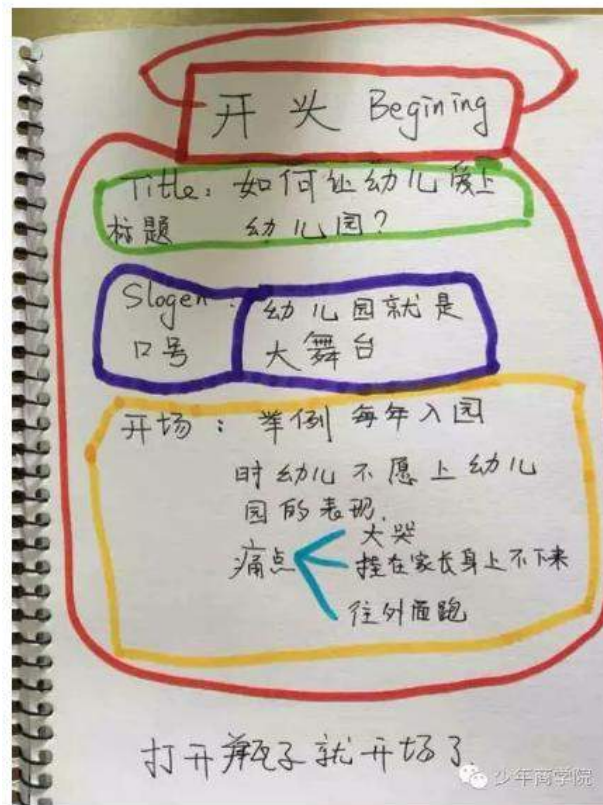 开头 Begining
Title: 如何让幼儿爱上
标题 幼儿园?
Slogen: 幼儿园就是
口号 大舞台
开场: 举例 每年入园
时幼儿不愿上幼儿
园的表现.
痛点
大哭
挂在家长身上不下来
往外面跑
打开瓶子就开场了
少年商学院